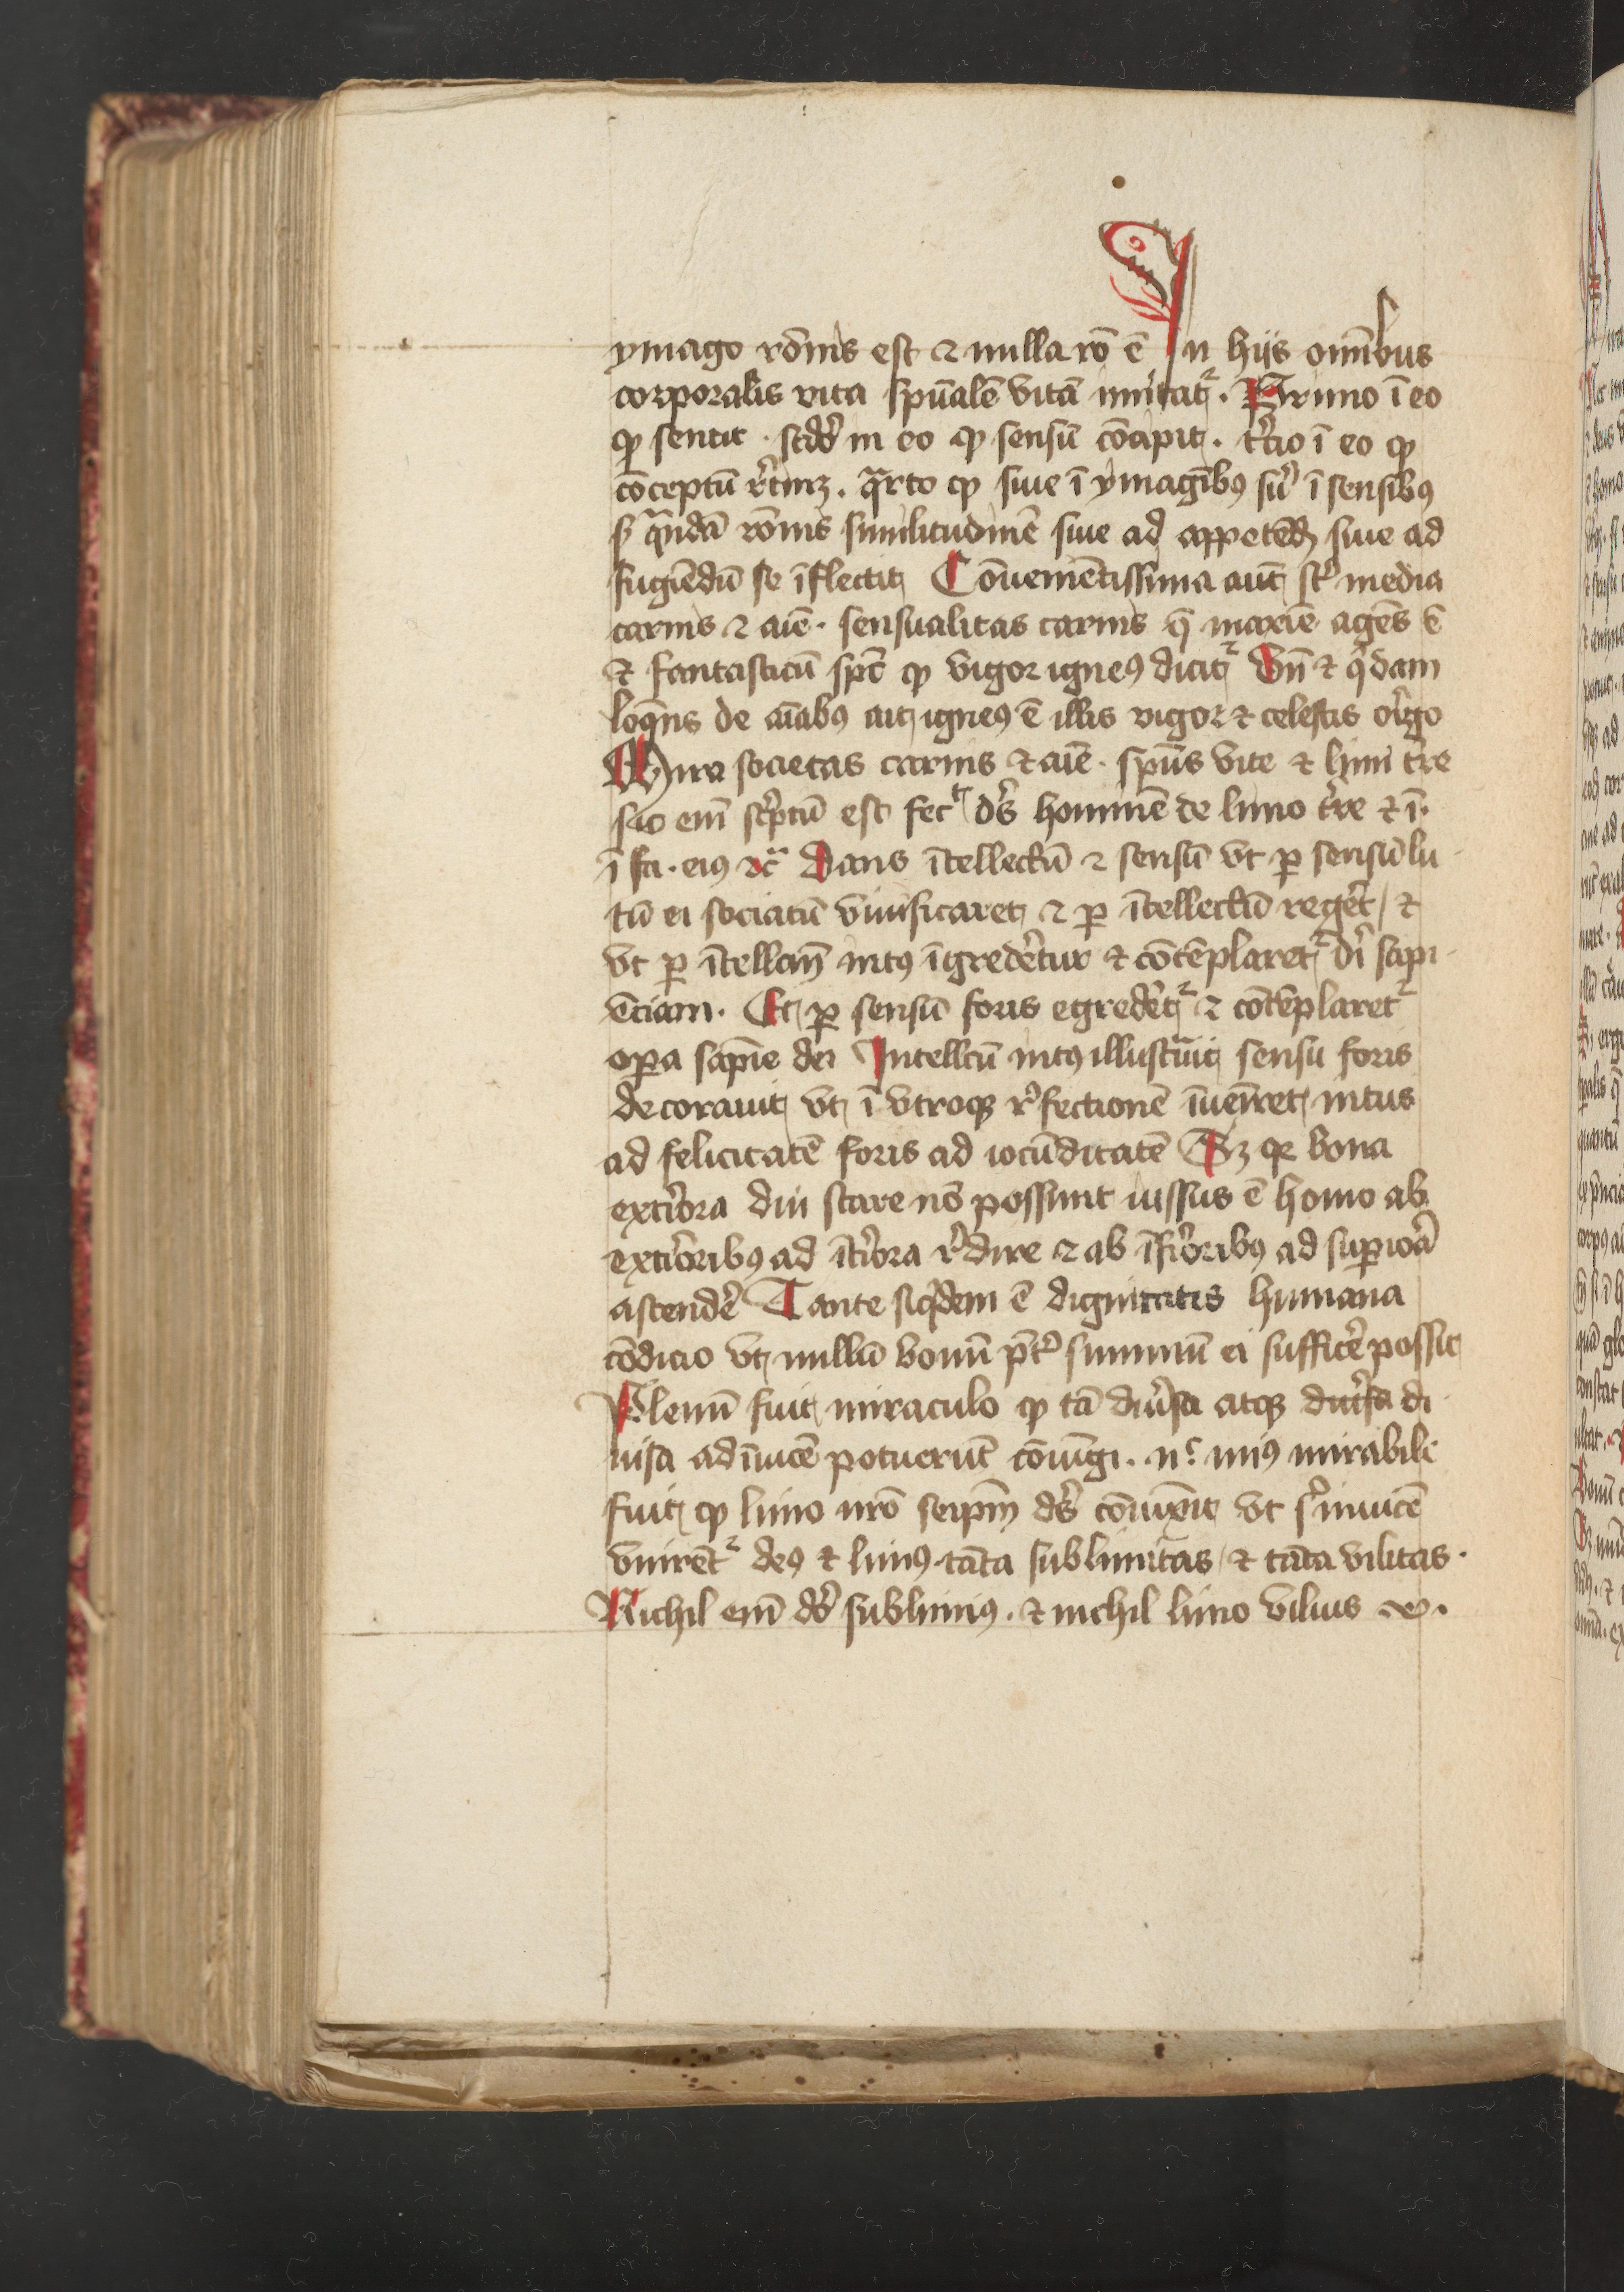 ymago rōnis est ⁊ nulla rō ē In hijs omībus
corporalis vita spūalē vitā imitat᷑. Primo ī eo
ꝙ sentit . scd̄o in eo ꝙ sensū cōcipit . t̓cio ī eo ꝙ
cōceptū r̓tinꝫ . qᷓrto ꝙ siue ī ymagībꝰ su̓ ī sensibꝰ
qᷓndā rōnis similitudinē siue ad appetēdꝫ siue ad
fugiēdū se īflectit Cōuenientissima aūt st̓ media
carnis ⁊ aīe . sensualitas carnis q̄ maxīe agēs ē
et fantasticū spc̄ ꝙ vigor igneꝰ dicit᷑ Vn̄ et qͥdam
loqn̄s de aīabꝰ ait igneꝰ ē illis vigor et celestis origo
Mira societas carnis et aīe . spūs vite et limi t̓re
sic em̄ sc̓ptū est fecᵗ dꝰ hominē de limo t̓re et ī.
ī fa . eiꝰ ⁊c̄ Dans ītellectū ⁊ sensū vt ꝑ sensū lu
tū ei sociatū viuificaret ⁊ ꝑ ītellectū reger̓t / et
vt ꝑ ītellcm̄ intꝰ īgreder̓tur et cōtēplaret᷑ di̓ sapi
ēciam . Et ꝑ sensū foris egreder̓t᷑ ⁊ cōtēplaret᷑
oꝑa sapīe dei Intellcū intꝰ illustᷓuit sensu foris
decorauit vt ī vtroqꝫ r̓fectionē īuen̄ret intus
ad felicitatē foris ad iocūditatē Sꝫ qꝛ bona
exti̓ora diu stare nō possunt iussus ē homo ab
exti̓oribꝰ ad īti̓ora r̓dire ⁊ ab īfi̓oribꝰ ad suꝑioᷓ
ascender̓ Tante siqͥdem ē dignitatis humana
cōdicio vt nullū bonū p̄t̓ summū ei sufficer̓ possit
Plenū fuit miraculo ꝙ tā diu̓sa atqꝫ diu̓sa di
uisa adīuicē potuerūt cōiūgi . nᶜ minꝰ mirabile
fuit ꝙ limo nr̄o seipm̄ dꝰ cōiūxit vt s̓ inuicē
vnirēt᷑ deꝰ et limꝰ . tāta sublimitas / et tāta vilitas .
Nichil em̄ do̓ sublimiꝰ . et nichil limo vilius